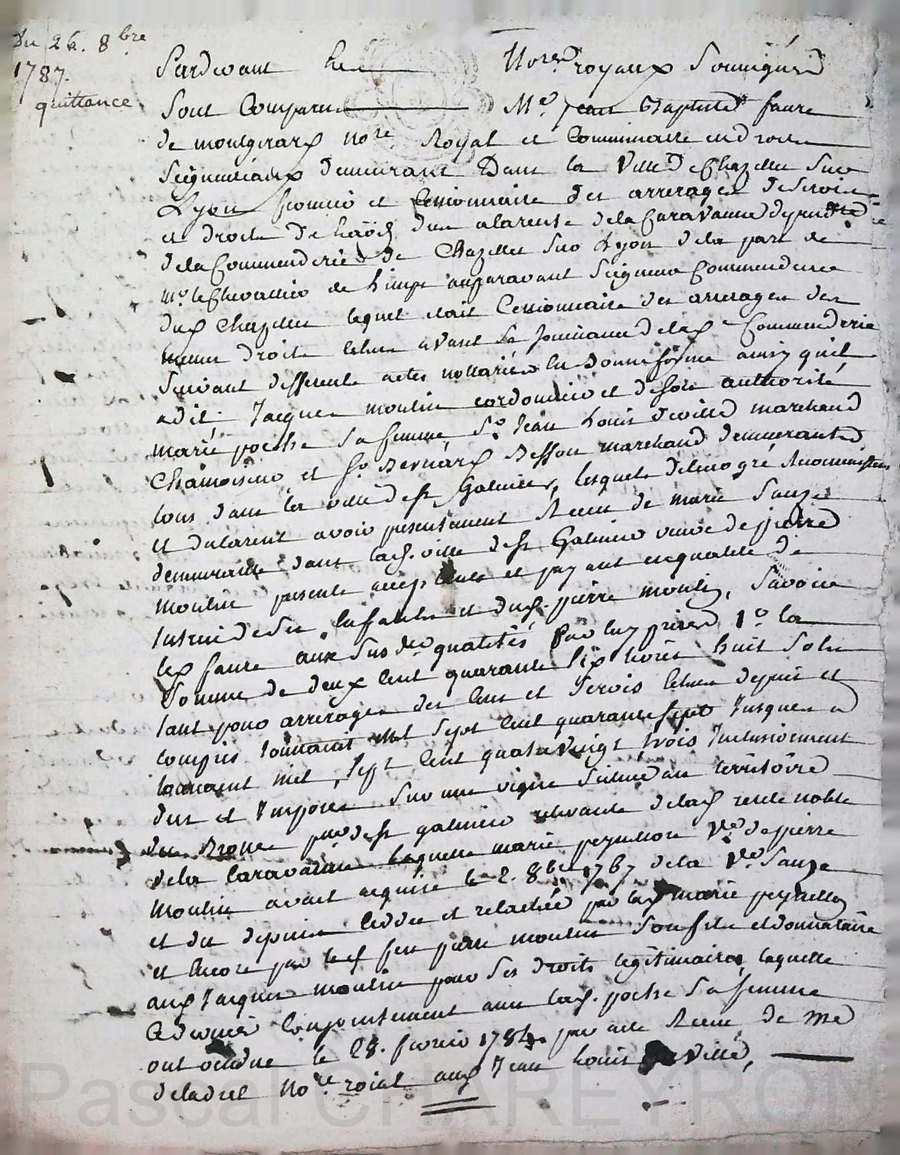 Du 26. 8bre
1787.
quittance
Pardevant les Nores royaux Soussignés
Sont Comparu Me. Jean Baptiste faure
de montgirard nore. Royal et Commissaire en droits
Seigneuriaux demeurant Dans la Ville de Chazelles Sur
Lyon fermier et Cessionnaire des arrerages de Servis
et droits de la rente de la Caravanne dependante
de la Commenderie de Chazelles Sur Lyon de la part de
mr. le Chevallier de auparavant Seigneur Commendeur
dud Chazelles lequel etait Cessionnaire des arrerages des
memes droits echus avant Sa Jouissance de lad Commenderie
Suivant differents actes nottariés en bonne forme ainsy quil
a dit. Jacques moulin cordonnier et de son authorité
marie poche Sa femme, Sr. Jean Louis deville marchand
Chamoiseur et Sr. Bernard Besson marchand demeurants
tous dans la ville de St Galmier, lesquels de leur gré
et ont avoir presentement Recu de marie Sauze
demeurante dans lad. ville de St Galmier veuve de pierre
moulin presente acceptante et payant en qualité de
tutrice de Ses Enfants et dud. pierre moulin, Savoir
led faure aux Susdes qualités par luy prises 1o. la
Somme de deux Cent quarante Six livres huit Sols
tant pour arrerages des Cens et Servis echus depuis et
compris lannée mil Sept Cent quarante Sept Jusques a
lannée mil Sept Cent quatre vingt trois Inclusivement
dus et Imposés Sur une vigne Scituée au territoire
parsse de St galmier relevante de lad rente noble
de la Caravanne laquelle marie peyrellon Ve. de pierre
Moulin avait acquise le 2. 8bre 1767 de la Ve. Sauze
et du depuis Cedée et relachée par lad marie peyrellon
et Encore par led feu pierre moulin Son fils et donnataire
aud Jacques moulin pour Ses droits legitimaires, laquelle
Ce dernier Conjointement avec lad. poche Sa femme
ont vendue le 28. fevrier 1784. par acte Recu de Me
deladret Nore roial aud Jean Louis deville,
Pascal CHAREYRON